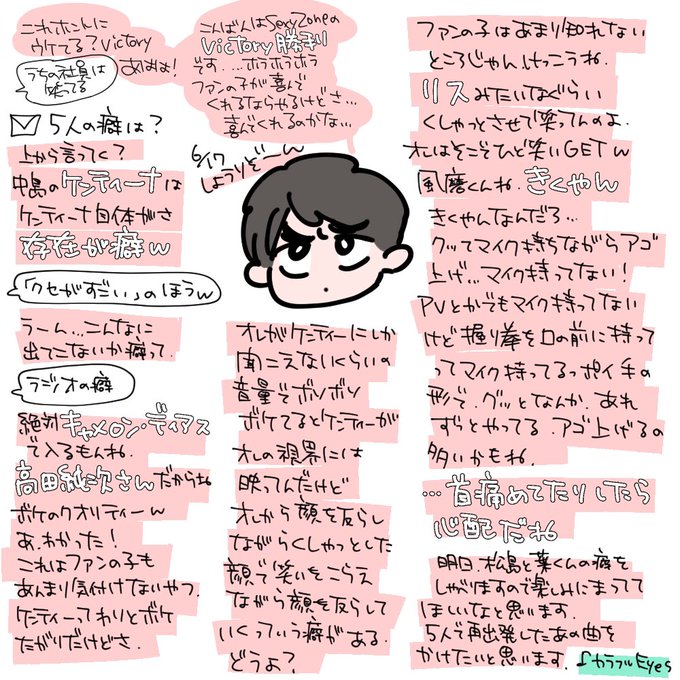 これホントに
ウケてる？Victory
あはは！
うちの社員は
笑ってる
こんばんはSexy Zoneの
Victory勝利
です...ホラホラホラ
ファンの子が喜んで
くれるならやるけどさ...
喜んでくれるのかな...
6/17
しょうりぞ〜ん
5人の癖は？
上から言ってく？
中島のケンティーナは
ケンティーナ自体がさ
存在が癖w
「クセがすごい」のほうw
うーん...こんなに
出てこないか癖って.
ラジオの癖
絶対キャメロン・ディアス
で入るもんね.
高田純次さんだからね
ボケのクオリティーw
あ.わかった！
これはファンの子も
あんまり気付けないやつ.
ケンティーってわりとボケ
たがりだけどさ.
オレがケンティーにしか
聞こえないくらいの
音量でボソボソ
ボケてるとケンティーが
オレの視界には
映ってんだけど
オレから顔を反らし
ながらくしゃっとした
顔で笑いをこらえ
ながら顔を反らして
いくっていう癖がある.
どうよ？
ファンの子はあまり知れない
ところじゃんけっこうね.
リスみたいなぐらい
くしゃっとさせて笑ってんのよ.
オレはそこでひと笑いGETw
風磨くんね.きくやん
きくやんなんだろ...
クッてマイク持ちながらアゴ
上げ...マイク持ってない！
PVとかでもマイク持ってない
けど握り拳を口の前に持って
ってマイク持ってるっポイ手の
形で.グッとなんか.あれ
ずっとやってる.アゴ上げるの
多いかもね.
...首痛めてたりしたら
心配だね
明日.松島と葉くんの癖を
しゃがりますので楽しみにまってて
ほしいなと思います.
5人で再出発したあの曲を
かけたいと思います.♪カラフルEyes